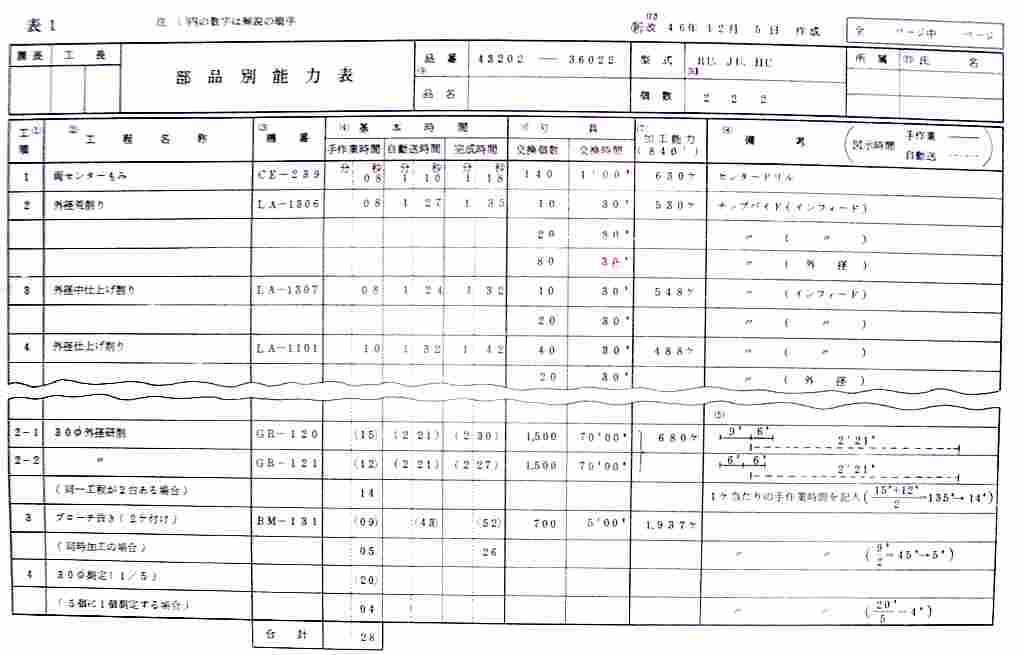 表1 注 ( )内の数字は解説の順序 (12) 新 改 46年12月 5日 作成 全 ページ中 ページ
課長 工長 部品別能力表 品番 43202 — 36022 型式 RU, JU, HU 所属 (11) 氏名
品名 個数 2 2 2
工順 (1) (2) 工程名称 (3) 機番 (4) 基本時間 刃具 (7) 加工能力 (840') 備考 図示時間 手作業 —— 自動送 -----
手作業時間 自動送時間 完成時間 交換個数 交換時間
分 秒 分 秒 分 秒
1 両センターもみ CE-239 08 1 10 1 18 140 1'00" 630ケ センタードリル
2 外径荒削り LA-1306 08 1 27 1 35 10 30" 530ケ チップバイト(インフィード)
20 30" 〃 ( 〃 )
80 30" 〃 (外径)
3 外径中仕上げ削り LA-1307 08 1 24 1 32 10 30" 548ケ 〃 (インフィード)
20 30" 〃 ( 〃 )
4 外径仕上げ削り LA-1101 10 1 32 1 42 40 30" 488ケ 〃 ( 〃 )
20 30" 〃 (外径)
(5)
2-1 30Φ外径研削 GR-120 (15) (2 21) (2 30) 1,500 70'00" 680ケ 9" 6" 2'21"
2-2 〃 GR-121 (12) (2 21) (2 27) 1,500 70'00" 6" 6" 2'21"
(同一工程が2台ある場合) 14 1ケ当たりの手作業時間を記入 (15"+12"/2=13.5"→14")
3 ブローチ抜き(2ケ付け) BM-131 (09) (43) (52) 700 5'00" 1,937ケ
(同時加工の場合) 05 26 〃 〃 (9"/2=4.5"→5")
4 30Φ測定(1/5) (20)
(5個に1個測定する場合) 04 〃 〃 (20"/5=4")
合計 28